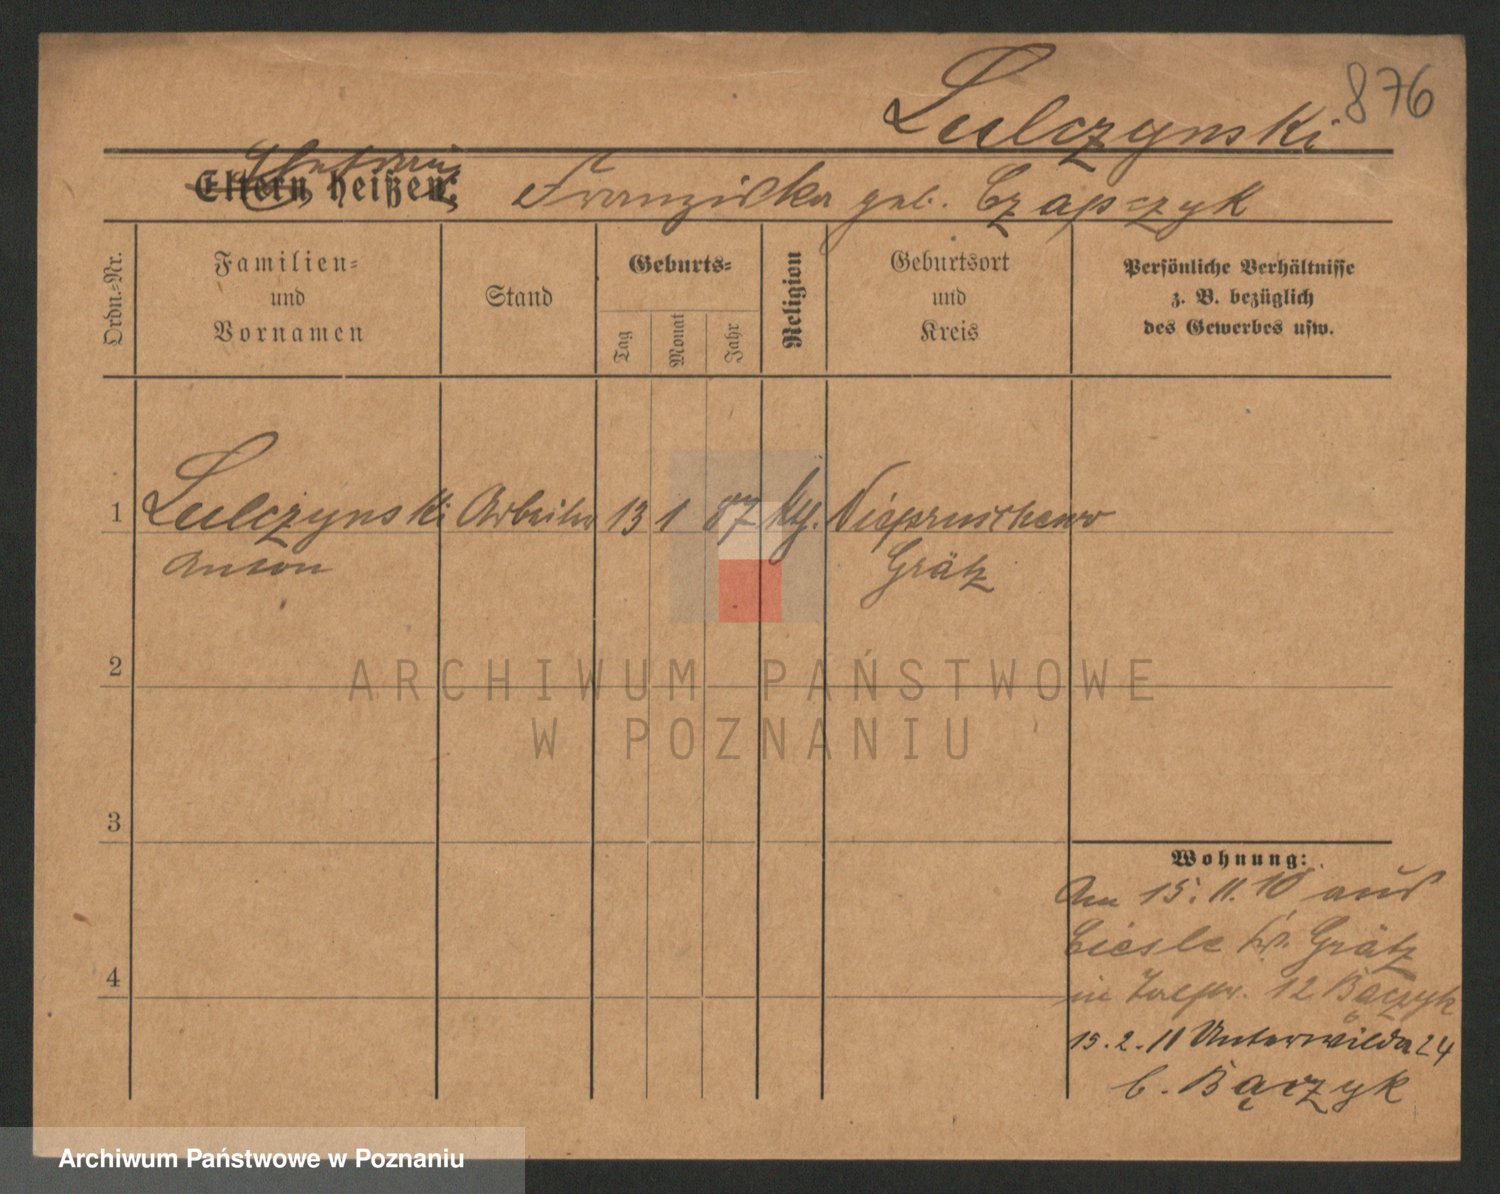 876
Lulczynski
Eltern heißen: Franziska geb. Czapczyk
Ordn.-Nr.
Familien-
und
Vornamen
Stand
Geburts-
Tag
Monat
Jahr
Religion
Geburtsort
und
Kreis
Persönliche Verhältnisse
z. B. bezüglich
des Gewerbes usw.
1 Lulczynski Arbeiter 13 1 87 kth.
Anton Grätz
2
3
4
Wohnung:
Am 15. 11. 10 aus
Ciesle Kr. Grätz
in 12 Bączyk
15. 2. 11 Unterwilda 24
b. Bączyk
ARCHIWUM PAŃSTWOWE
W POZNANIU
Archiwum Państwowe w Poznaniu